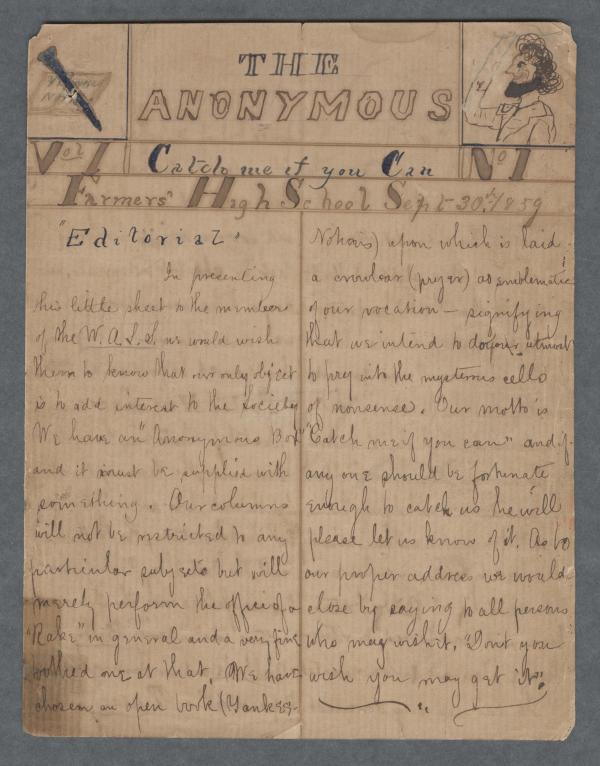 THE
ANONYMOUS
Yankee
Notions
Vol 1
Catch me if you Can
No 1
Farmers' High School Sept 30th/1859
"Editorial"
In presenting
this little sheet to the members
of the W.A.L.S. we would wish
them to know that our only object
is to add interest to the Society
We have an "Anonymous Box"
and it must be supplied with
something. Our columns
will not be restricted to any
particular subjects but will
merely perform the office of a
"Rake" in general and a very fine
toothed one at that. We have
chosen an open book (Yankee-
Notions) upon which is laid
a crowbar (pryer) as emblematic
of our vocation — signifying
that we intend to do our utmost
to pry into the mysterous cells
of nonsense. Our motto is
"Catch me if you can" and if
any one should be fortunate
enough to catch us he will
please let us know of it. As to
our proper address we would
close by saying to all persons
who may wish it, "Dont you
wish you may get it".